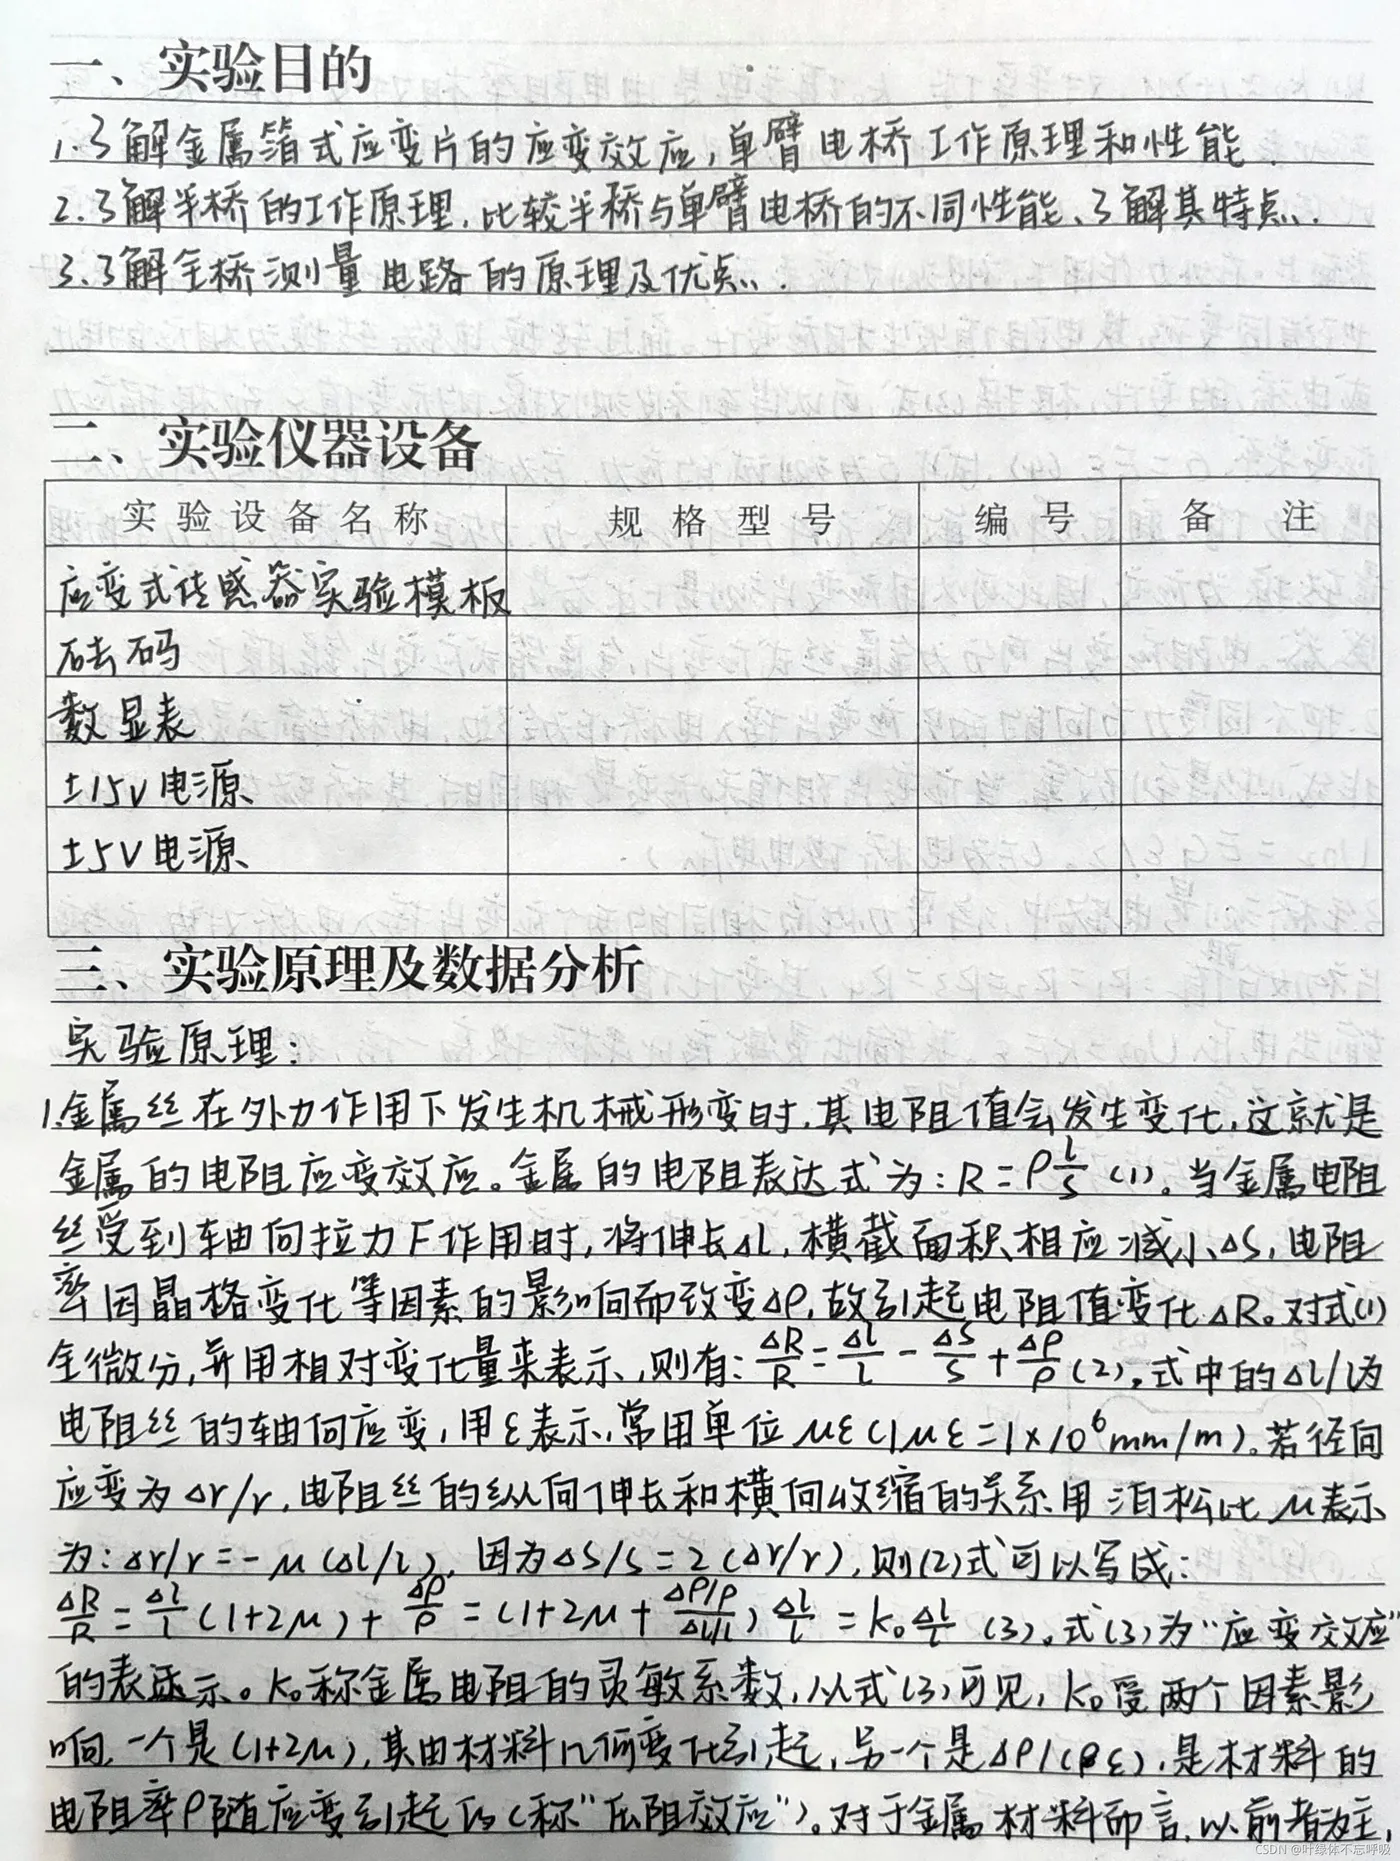 一、实验目的
1.了解金属箔式应变片的应变效应,单臂电桥工作原理和性能.
2.了解半桥的工作原理,比较半桥与单臂电桥的不同性能、了解其特点.
3.了解全桥测量电路的原理及优点.
二、实验仪器设备
实验设备名称 规格型号 编号 备注
应变式传感器实验模板
砝码
数显表
±15V电源
±5V电源
三、实验原理及数据分析
实验原理:
1.金属丝在外力作用下发生机械形变时,其电阻值会发生变化,这就是
金属的电阻应变效应。金属的电阻表达式为:R=ρl/S (1)。当金属电阻
丝受到轴向拉力F作用时,将伸长Δl,横截面积相应减小ΔS,电阻
率因晶格变化等因素的影响而改变Δρ,故引起电阻值变化ΔR。对式(1)
全微分,并用相对变化量来表示,则有:ΔR/R=Δl/l-ΔS/S+Δρ/ρ(2)。式中的Δl/l为
电阻丝的轴向应变,用ε表示,常用单位με(1με=1×10⁶mm/m)。若径向
应变为Δr/r,电阻丝的纵向伸长和横向收缩的关系用泊松比μ表示
为:Δr/r=-μ(Δl/l),因为ΔS/S=2(Δr/r),则(2)式可以写成:
ΔR/R=Δl/l(1+2μ)+Δρ/ρ=(1+2μ+(Δρ/ρ)/(Δl/l))Δl/l=k₀Δl/l (3)。式(3)为"应变效应"
的表达示。k₀称金属电阻的灵敏系数,从式(3)可见,k₀受两个因素影
响,一个是(1+2μ),其由材料几何变化引起,另一个是Δρ/(ρε),是材料的
电阻率ρ随应变引起的(称"压阻效应")。对于金属材料而言,以前者为主,
CSDN @叶绿体不忘呼吸